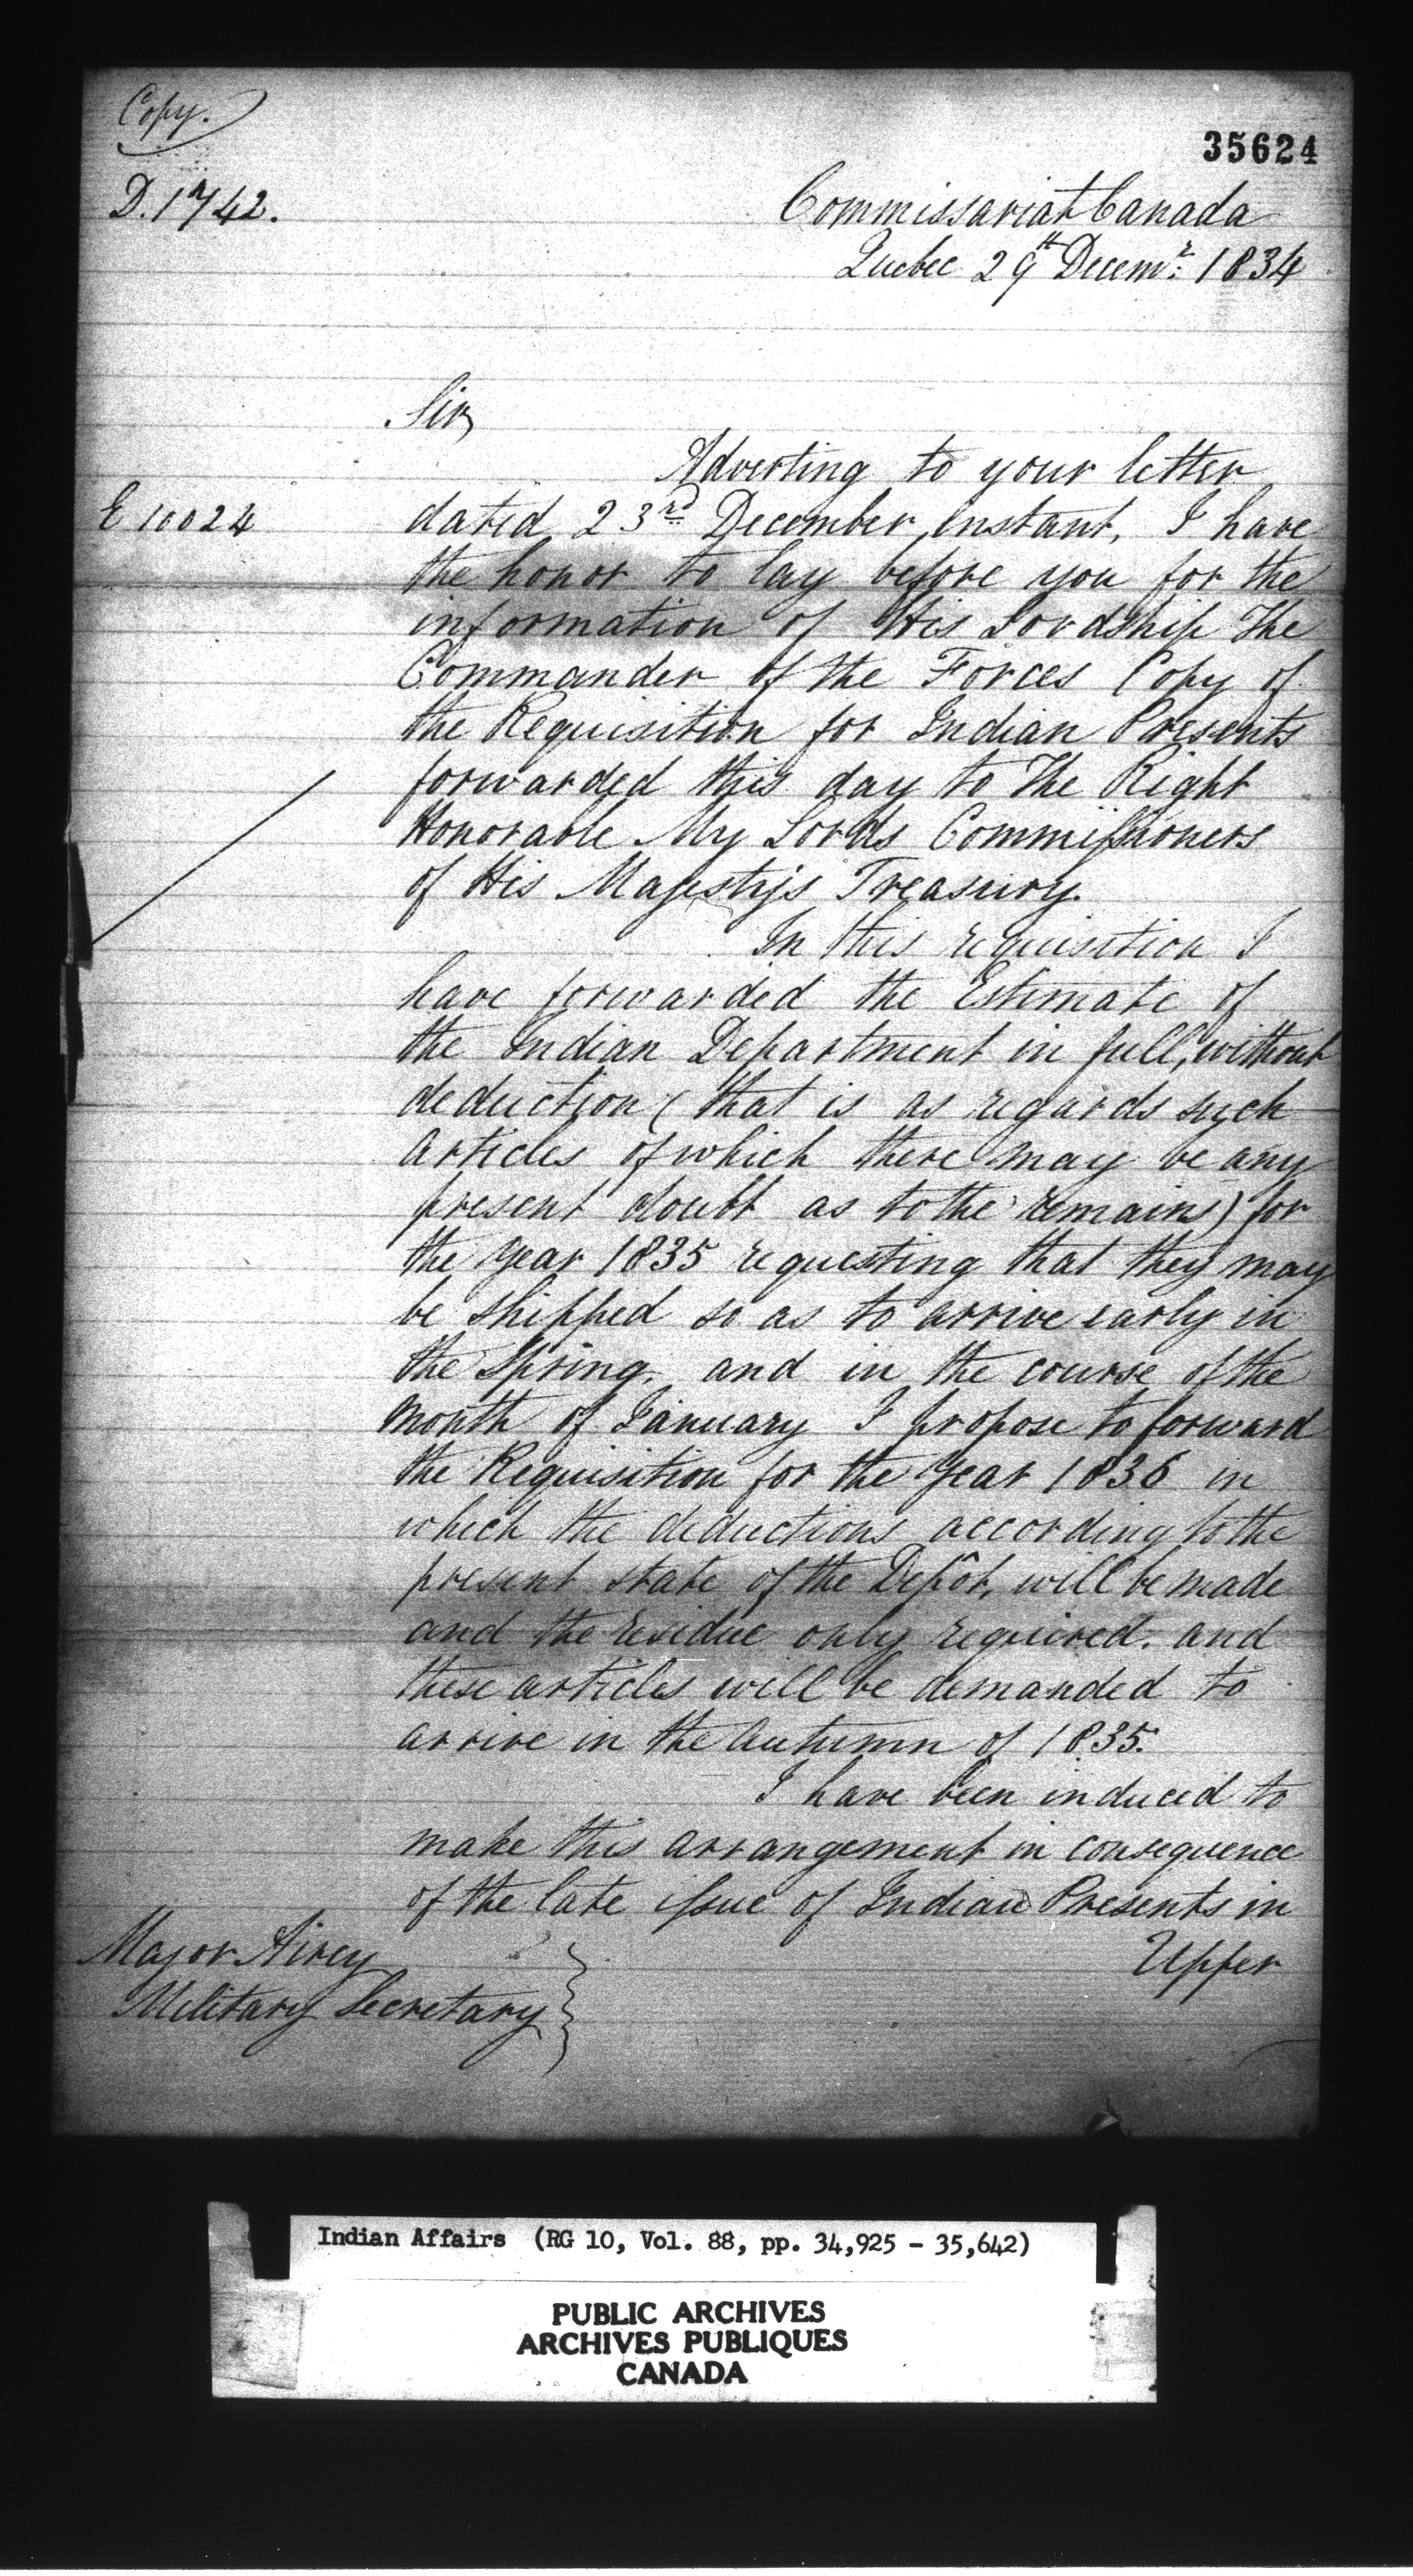 Copy.
35624
D. 1742.
Commissariat Canada
Quebec 29th Decemr. 1834
Sir,
Adverting to your letter
E 10024
dated 23rd December instant, I have
the honor to lay before you for the
information of His Lordship The
Commander of the Forces Copy of
the Requisition for Indian Presents
forwarded this day to The Right
Honorable My Lords Commissioners
of His Majesty's Treasury.
In this requisition I
have forwarded the Estimate of
the Indian Department in full, without
deduction (that is as regards such
articles of which there may be any
present doubt as to the remains) for
the year 1835 requesting that they may
be shipped so as to arrive early in
the Spring. and in the course of the
month of January I propose to forward
the Requisition for the Year 1836 in
which the deductions according to the
present state of the Depôt, will be made
and the residue only required. and
these articles will be demanded to
arrive in the autumn of 1835.
I have been induced to
make this arrangement in consequence
of the late issue of Indian Presents in
Upper
Major Airey
Military Secretary
Indian Affairs (RG 10, Vol. 88, pp. 34,925 - 35,642)
PUBLIC ARCHIVES
ARCHIVES PUBLIQUES
CANADA